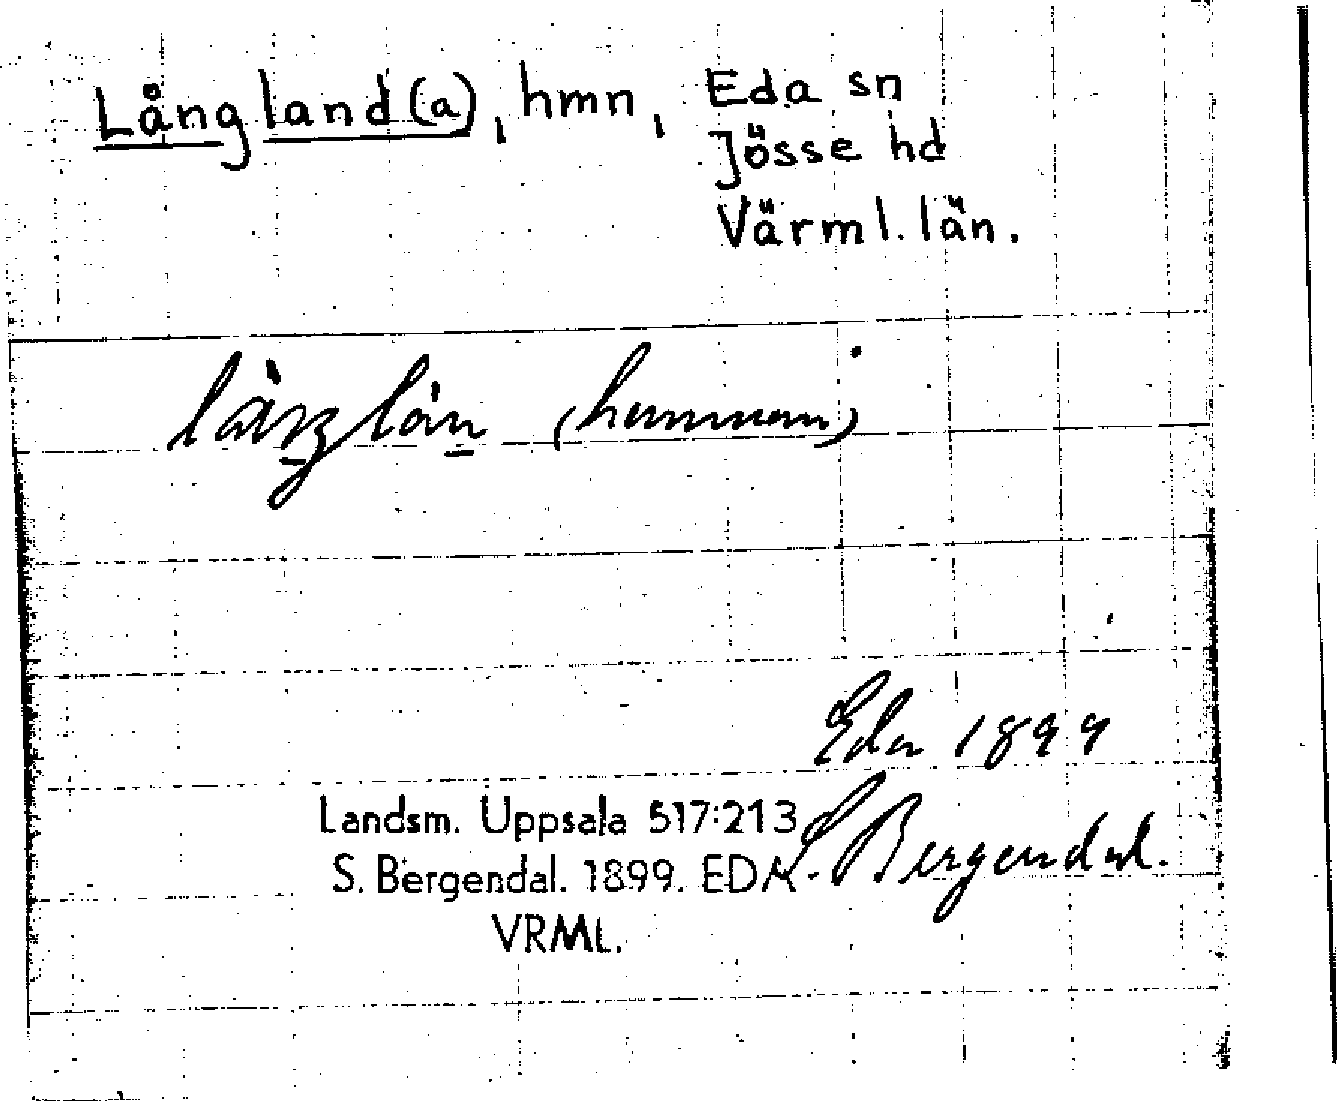 Långland(a), hmn, Eda sn
Jösse hd
Värml. län.
(hemman)
Eda 1899
S. Bergendal.
Landsm. Uppsala 517:213
S. Bergendal. 1899. EDA.
VRML.